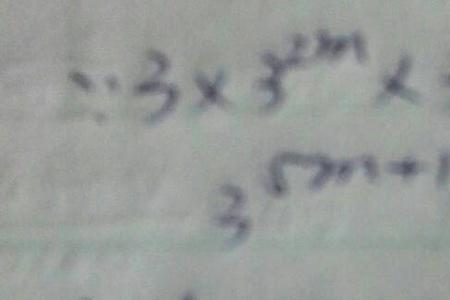 ∵ 3 × 3^{2m} ×
3^{5m+1}